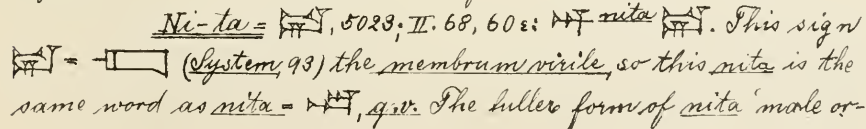 Ni-ta = 𒀴, 5023; II. 68, 60 ε: nita. This sign
= (System, 93) the membrum virile, so this nita is the
same word as nita = , q.v. The fuller form of nita 'male or-